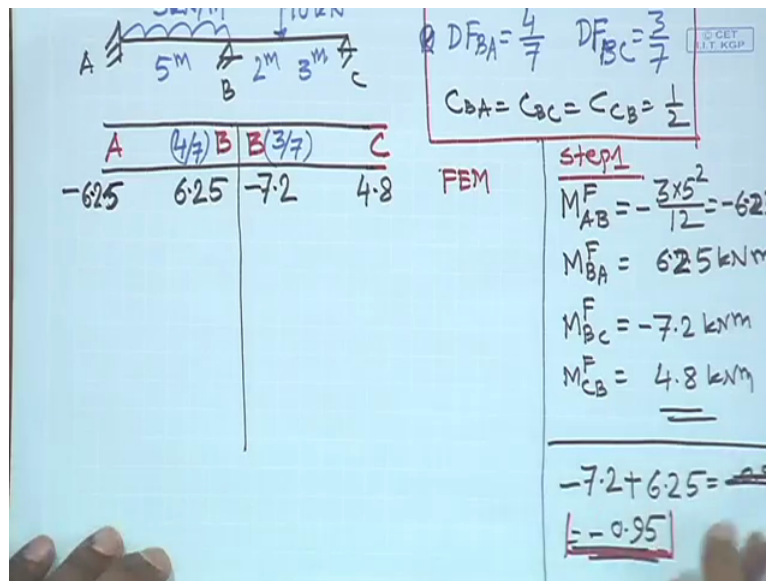 10 kN
A 5m B 2m 3m C
DF_BA = 4/7 DF_BC = 3/7
C_BA = C_BC = C_CB = 1/2
© CET
I.I.T. KGP
A (4/7) B B (3/7) C
-6.25 6.25 -7.2 4.8 FEM
Step1
M^F_AB = - 3×5²/12 = -6.2
M^F_BA = 6.25 kNm
M^F_BC = -7.2 kNm
M^F_CB = 4.8 kNm
-7.2 + 6.25 =
= -0.95